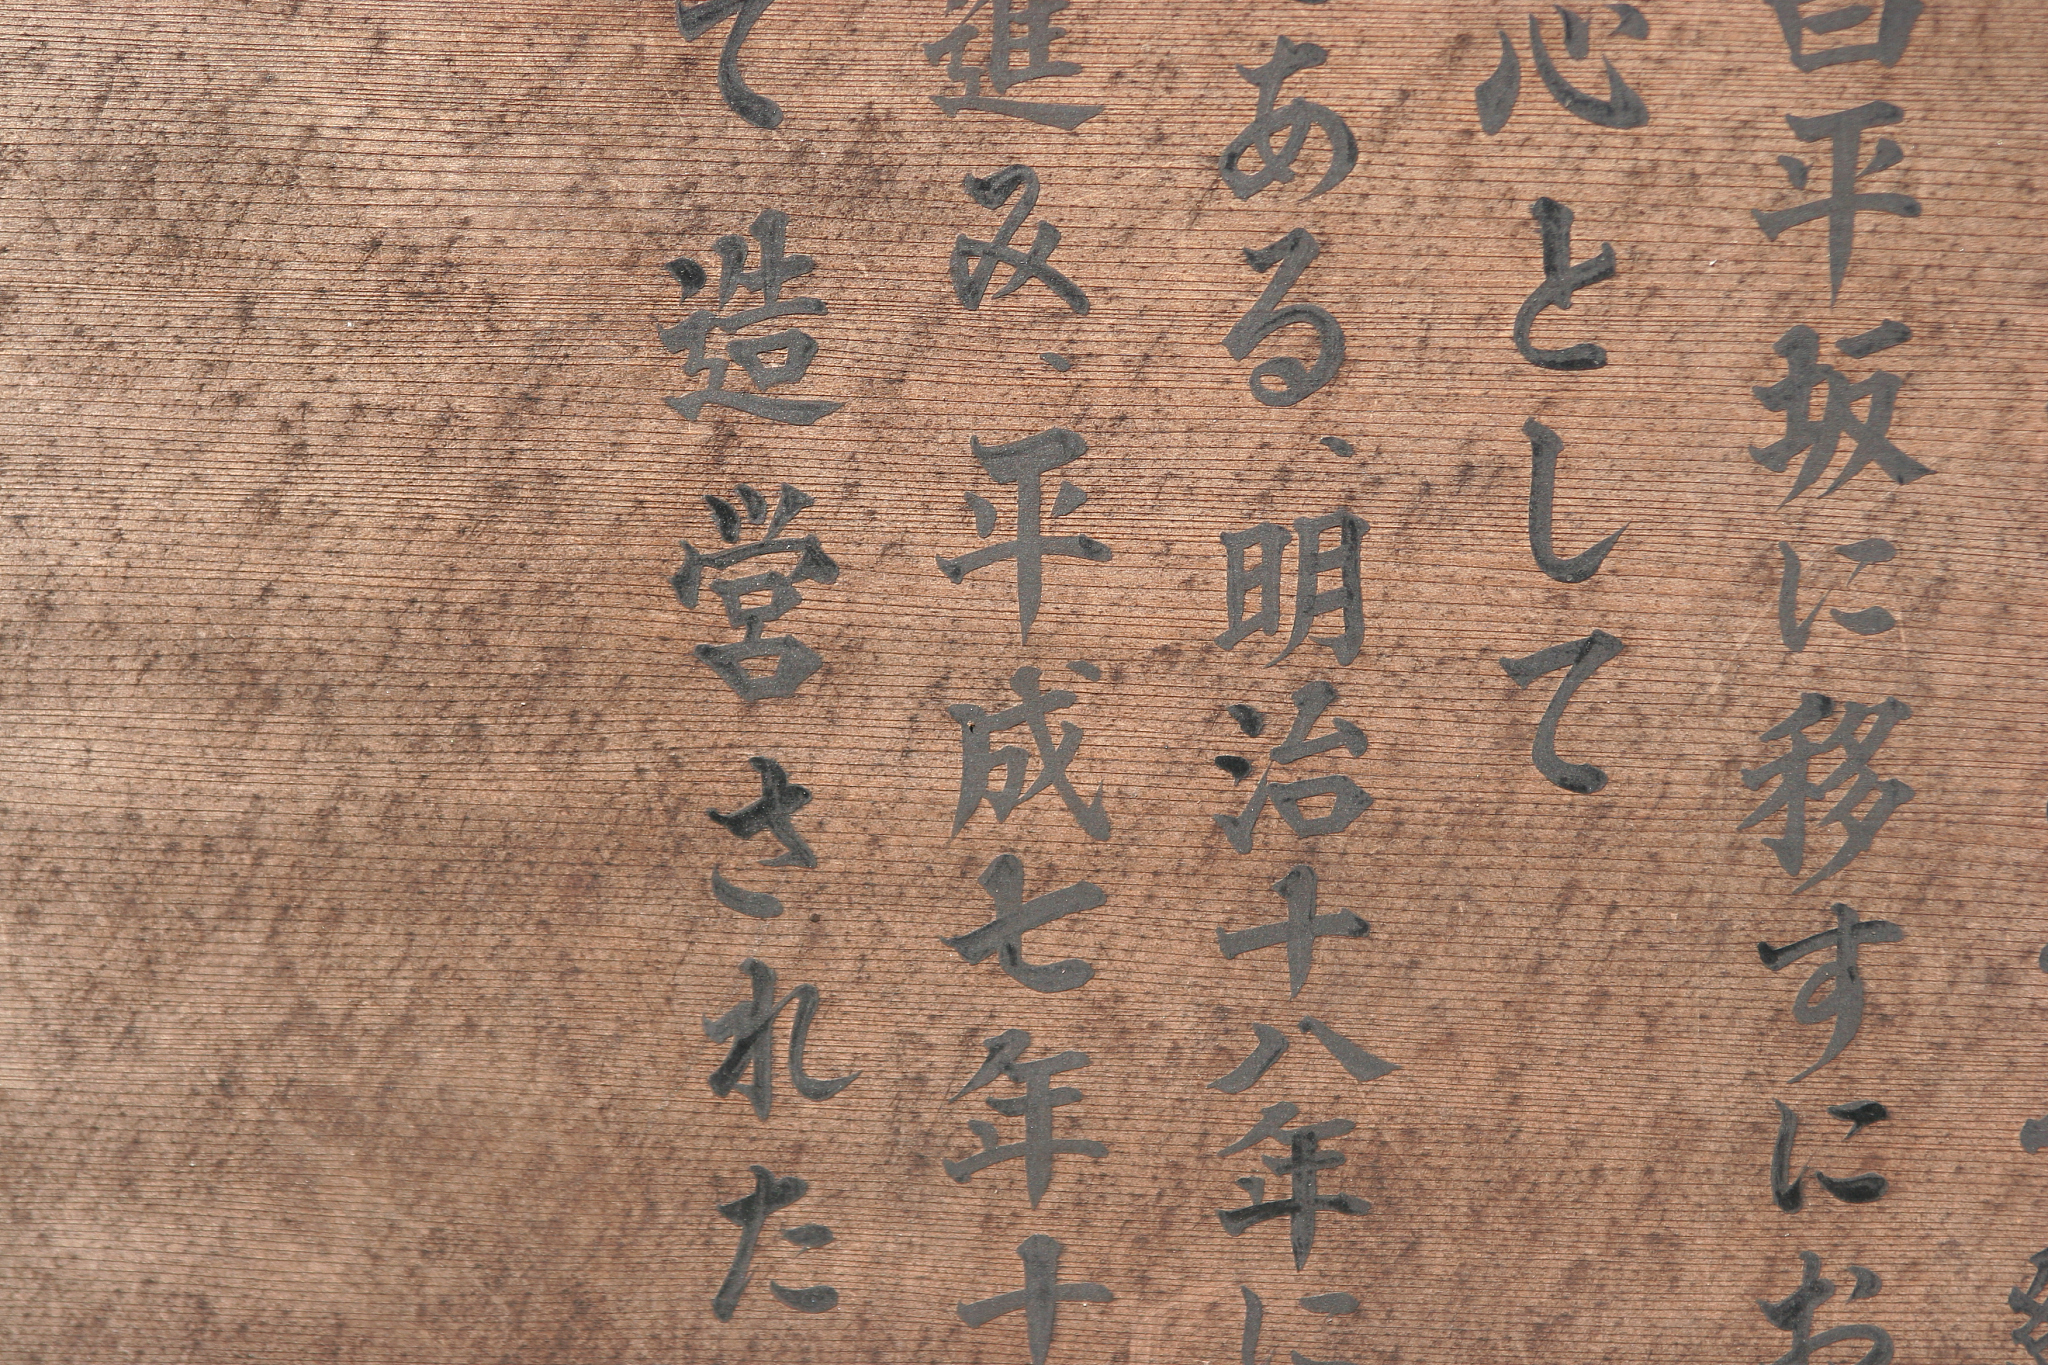 昌平坂に移すにお
心として
ある、明治十八年に
進み、平成七年十
て造営された